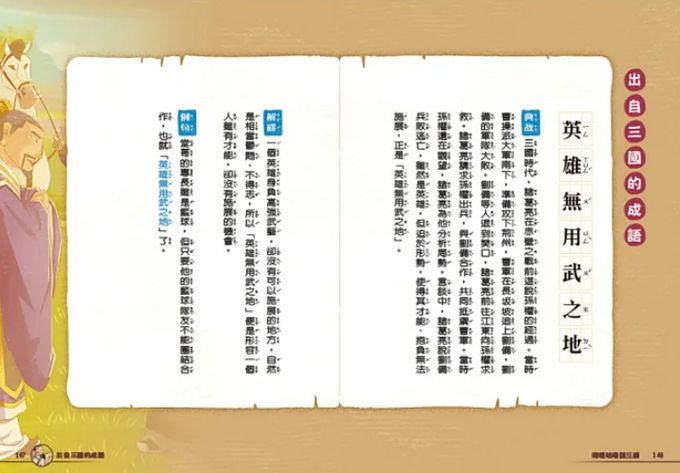 出自三國的成語
英雄無用武之地
典故 三國時代，諸葛亮在赤壁之戰前遊說孫權的經過。當時
曹操派大軍南下，準備攻下荊州，曹軍在長坂坡追上劉備，劉
備的軍隊大敗。劉備等人退到樊口，諸葛亮前往江東向孫權求
救。諸葛亮請求孫權出兵，與劉備合作，共同抵禦曹軍。當時
孫權還在觀望，諸葛亮為他分析局勢。言談中，諸葛亮說劉備
兵敗逃亡，雖然是英雄，但迫於形勢，使得其才能、抱負無法
施展，正是「英雄無用武之地」。
解釋 一個英雄身負高強武藝，卻沒有可以施展的地方，自然
是相當鬱悶、不得志，所以「英雄無用武之地」便是形容一個
人雖有才能，卻沒有施展的機會。
例句 當哥的專長雖是籃球，但只要他的籃球隊友不能團結合
作，也就「英雄無用武之地」了。
146
147
出自三國的成語